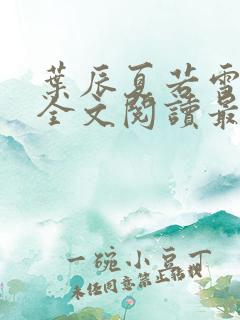 葉辰夏若雪
全文閱讀最
一碗小豆丁
未經同意禁止轉載